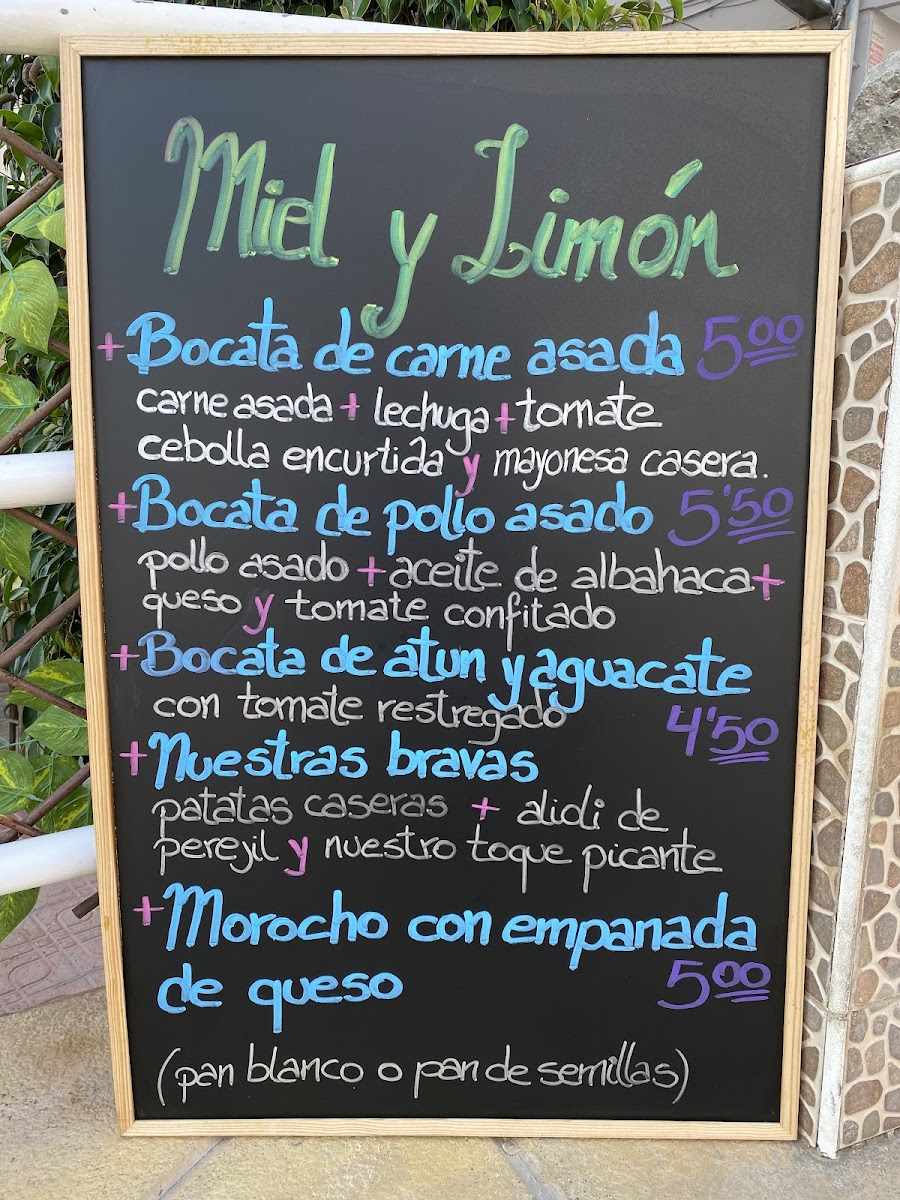 Miel y Limón
+ Bocata de carne asada 5'00
carne asada + lechuga + tomate
cebolla encurtida y mayonesa casera.
+ Bocata de pollo asado 5'50
pollo asado + aceite de albahaca +
queso y tomate confitado
+ Bocata de atun y aguacate
con tomate restregado 4'50
+ Nuestras bravas
patatas caseras + alioli de
perejil y nuestro toque picante
+ Morocho con empanada
de queso 5'00
(pan blanco o pan de semillas)